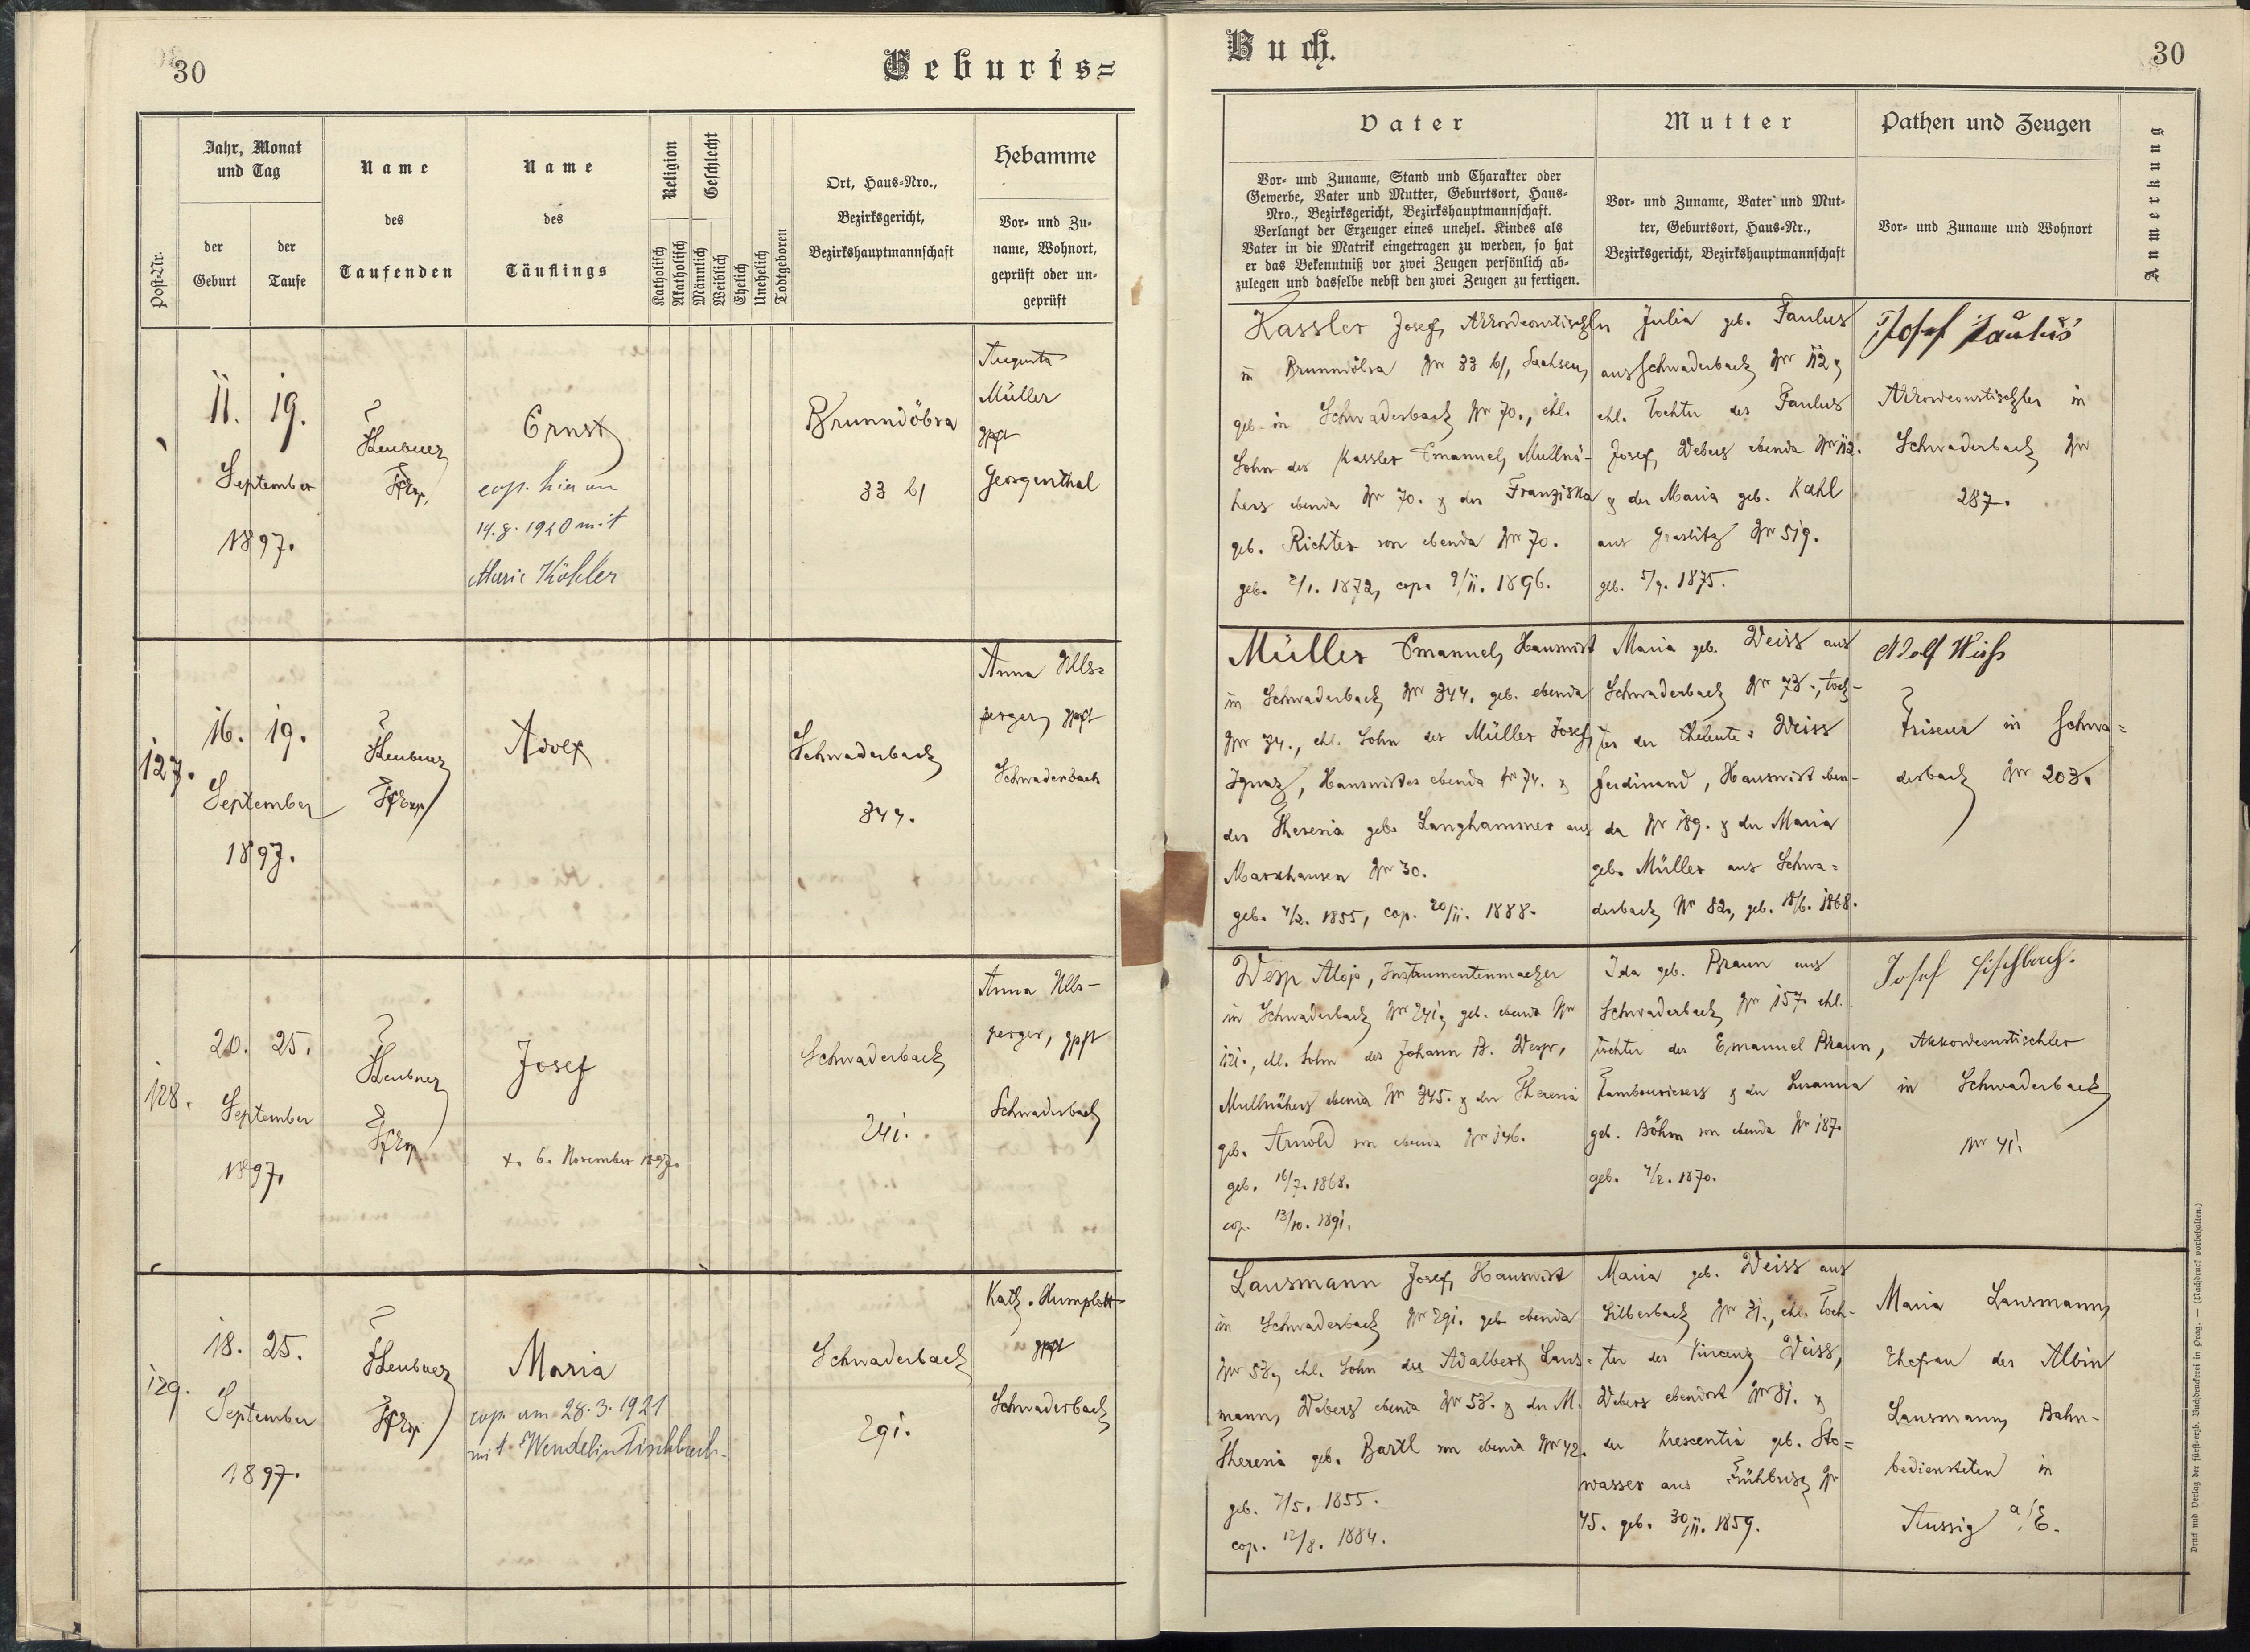 30
Geburts=
Post-Nr.
Jahr, Monat
und Tag
der
Geburt
der
Taufe
Name
des
Taufenden
Name
des
Täuflings
Religion
Katholisch
Akatholisch
Geschlecht
Männlich
Weiblich
Ehelich
Unehelich
Todtgeboren
Ort, Haus-Nro.,
Bezirksgericht,
Bezirkshauptmannschaft
Hebamme
Vor- und Zu-
name, Wohnort,
geprüft oder un-
geprüft
11. 19.
September
1897.
Heubner
Ernst
cop. hier am
14.8.1920 mit
Marie Köhler
Brunndöbra
33 b/
Augusta
Müller
gpft
Georgenthal
127.
16. 19.
September
1897.
Heubner
Adolf
Schwaderbach
344.
Anna Ulls-
perger, gpft
Schwaderbach
128.
20. 25.
September
1897.
Heubner
Josef
+. 6. November 1897.
Schwaderbach
241.
Anna Ulls-
perger, gpft
Schwaderbach
129.
18. 25.
September
1897.
Heubner
Maria
cop. am 28.3.1921
mit Wendelin Fischbach.
Schwaderbach
291.
Kath. Humplott
gpft
Schwaderbach
Buch.
30
Vater
Vor- und Zuname, Stand und Charakter oder
Gewerbe, Vater und Mutter, Geburtsort, Haus-
Nro., Bezirksgericht, Bezirkshauptmannschaft.
Verlangt der Erzeuger eines unehel. Kindes als
Vater in die Matrik eingetragen zu werden, so hat
er das Bekenntniß vor zwei Zeugen persönlich ab-
zulegen und dasselbe nebst den zwei Zeugen zu fertigen.
Mutter
Vor- und Zuname, Vater und Mut-
ter, Geburtsort, Haus-Nr.,
Bezirksgericht, Bezirkshauptmannschaft
Pathen und Zeugen
Vor- und Zuname und Wohnort
Anmerkung
Kassler Josef, Akkordeonstischler
in Brunndöbra Nr 33 b/, Sachsen,
geb. in Schwaderbach Nr 70., ehl.
Sohn des Kassler Emanuel, Mullnä-
hers ebenda Nr 70. & der Franziska
geb. Richter von ebenda Nr 70.
geb. 2/1. 1872, cop. 9/11. 1896.
Julia geb. Paulus
aus Schwaderbach Nr 112,
ehl. Tochter des Paulus
Josef, Webers ebenda Nr 112.
& der Maria geb. Kahl
aus Graslitz Nr 519.
geb. 5/9. 1875.
Josef Paulus
Akkordeonstischler in
Schwaderbach Nr
287.
Müller Emanuel, Hauswirt
in Schwaderbach Nr 344. geb. ebenda
Nr 74., ehl. Sohn des Müller Josef
Ignaz, Hauswirtes ebenda Nr 74. &
der Theresia geb. Langhammer aus
Markhausen Nr 30.
geb. 4/2. 1855, cop. 20/11. 1888.
Maria geb. Weiss aus
Schwaderbach Nr 78., Toch-
ter der Eheleute: Weiss
Ferdinand, Hauswirt eben-
da Nr 189. & der Maria
geb. Müller aus Schwa-
derbach Nr 82, geb. 18/6. 1868.
Adolf Weiß
Friseur in Schwa-
derbach Nr 203.
Wesp Alois, Instrumentenmacher
in Schwaderbach Nr 241, geb. ebenda Nr
121., ehl. Sohn des Johann B. Wesp,
Mullnähers ebenda Nr 345. & der Theresia
geb. Arnold von ebenda Nr 146.
geb. 16/7. 1868.
cop. 13/10. 1891.
Ida geb. Braun aus
Schwaderbach Nr 157. ehl.
Tochter des Emanuel Braun,
Tambourierers & der Susanna
geb. Böhm von ebenda Nr 187.
geb. 4/2. 1870.
Josef Fischbach.
Akkordeonstischler
in Schwaderbach
Nr 41.
Lausmann Josef, Hauswirt
in Schwaderbach Nr 291. geb. ebenda
Nr 58, ehl. Sohn des Adalbert Laus-
mann, Webers ebenda Nr 58. & der M.
Theresia geb. Bartl von ebenda Nr 42.
geb. 7/5. 1855.
cop. 12/8. 1884.
Maria geb. Weiss aus
Silberbach Nr 31., ehl. Toch-
ter des Vincenz Weiss,
Webers ebendort Nr 31. &
der Krescentia geb. Sto-
wasser aus Frühbuss Nr
45. geb. 30/11. 1859.
Maria Lausmann,
Ehefrau des Albin
Lausmann, Bahn-
bediensteten in
Aussig a/E.
Druck und Verlag der fürst-erzb. Buchdruckerei in Prag. — (Nachdruck vorbehalten.)